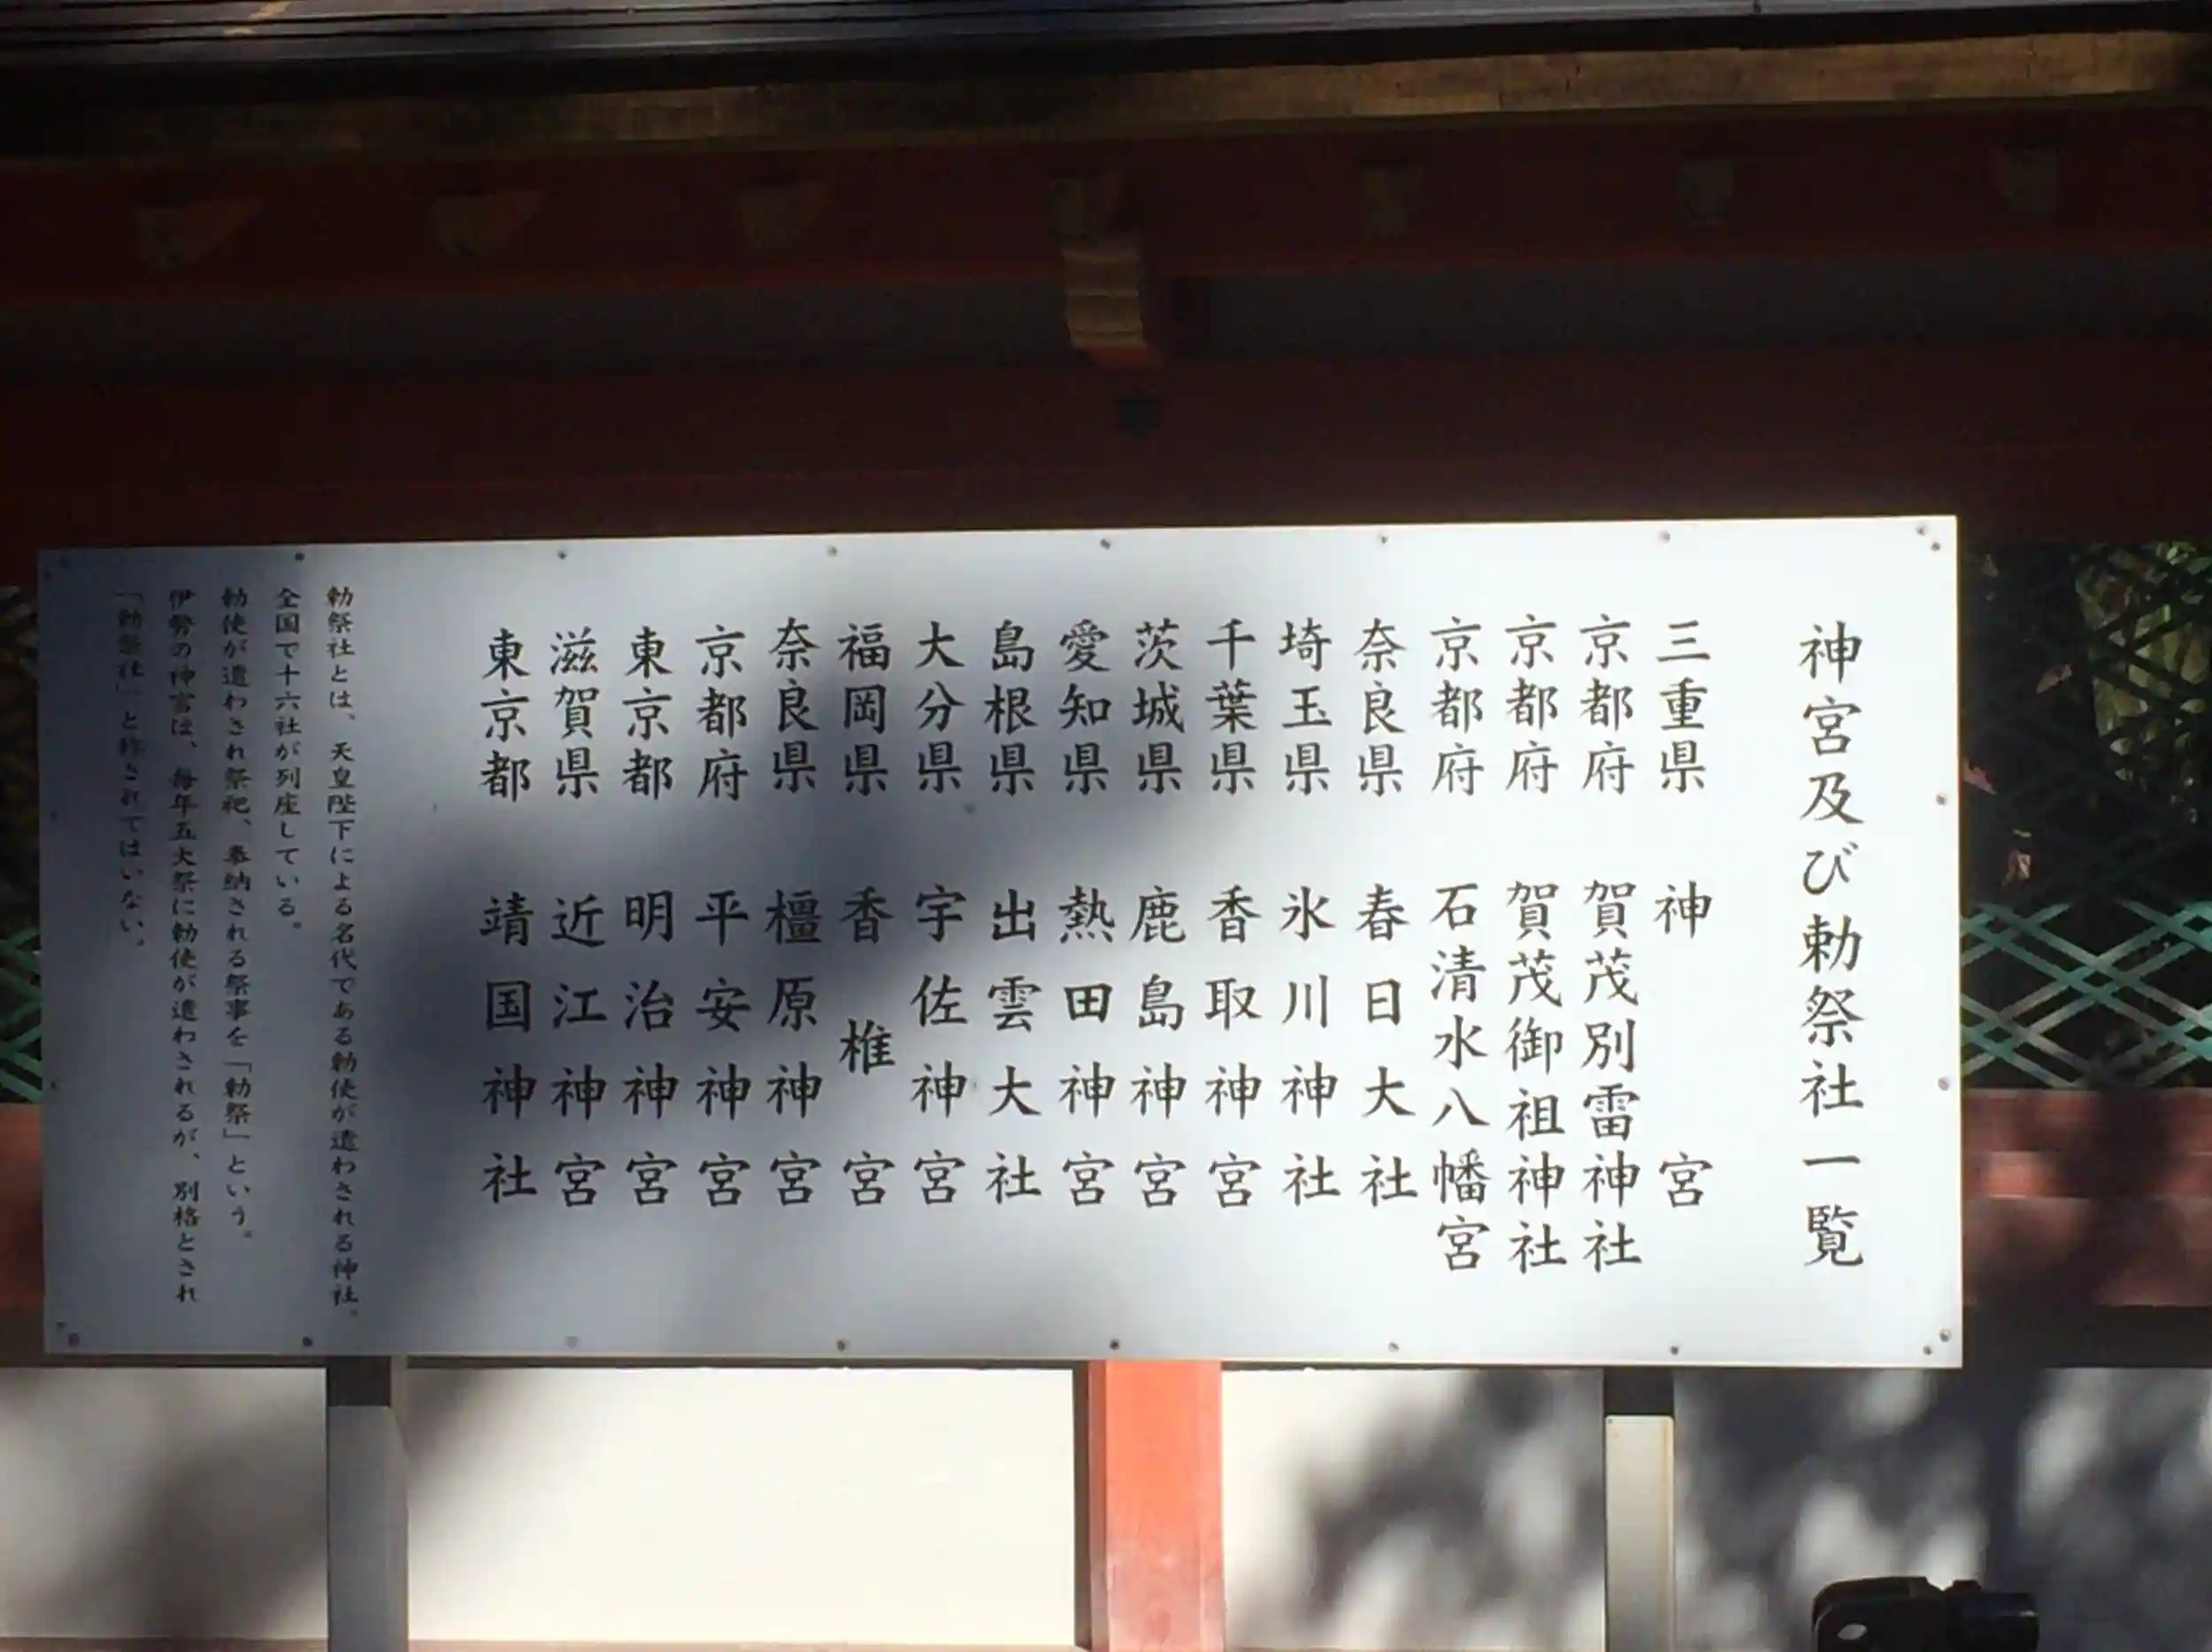 神宮及び勅祭社一覧
三重県 神宮
京都府 賀茂別雷神社
京都府 賀茂御祖神社
京都府 石清水八幡宮
奈良県 春日大社
埼玉県 氷川神社
千葉県 香取神宮
茨城県 鹿島神宮
愛知県 熱田神宮
島根県 出雲大社
大分県 宇佐神宮
福岡県 香椎宮
奈良県 橿原神宮
京都府 平安神宮
東京都 明治神宮
滋賀県 近江神宮
東京都 靖国神社
勅祭社とは、天皇陛下による名代である勅使が遣わされる神社。
全国で十六社が列座している。
勅使が遣わされ祭祀、奉納される祭事を「勅祭」という。
伊勢の神宮は、毎年五大祭に勅使が遣わされるが、別格とされ
「勅祭社」と称されてはいない。